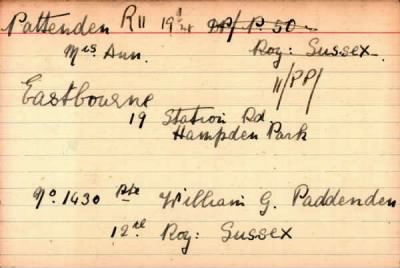 Pattenden R11 19 1/4 DP/P. 50
Mrs Ann. Roy: Sussex.
11/PP/
Eastbourne
19 Station Rd
Hampden Park
No. 1430 Pte William G. Paddenden
12th Roy: Sussex